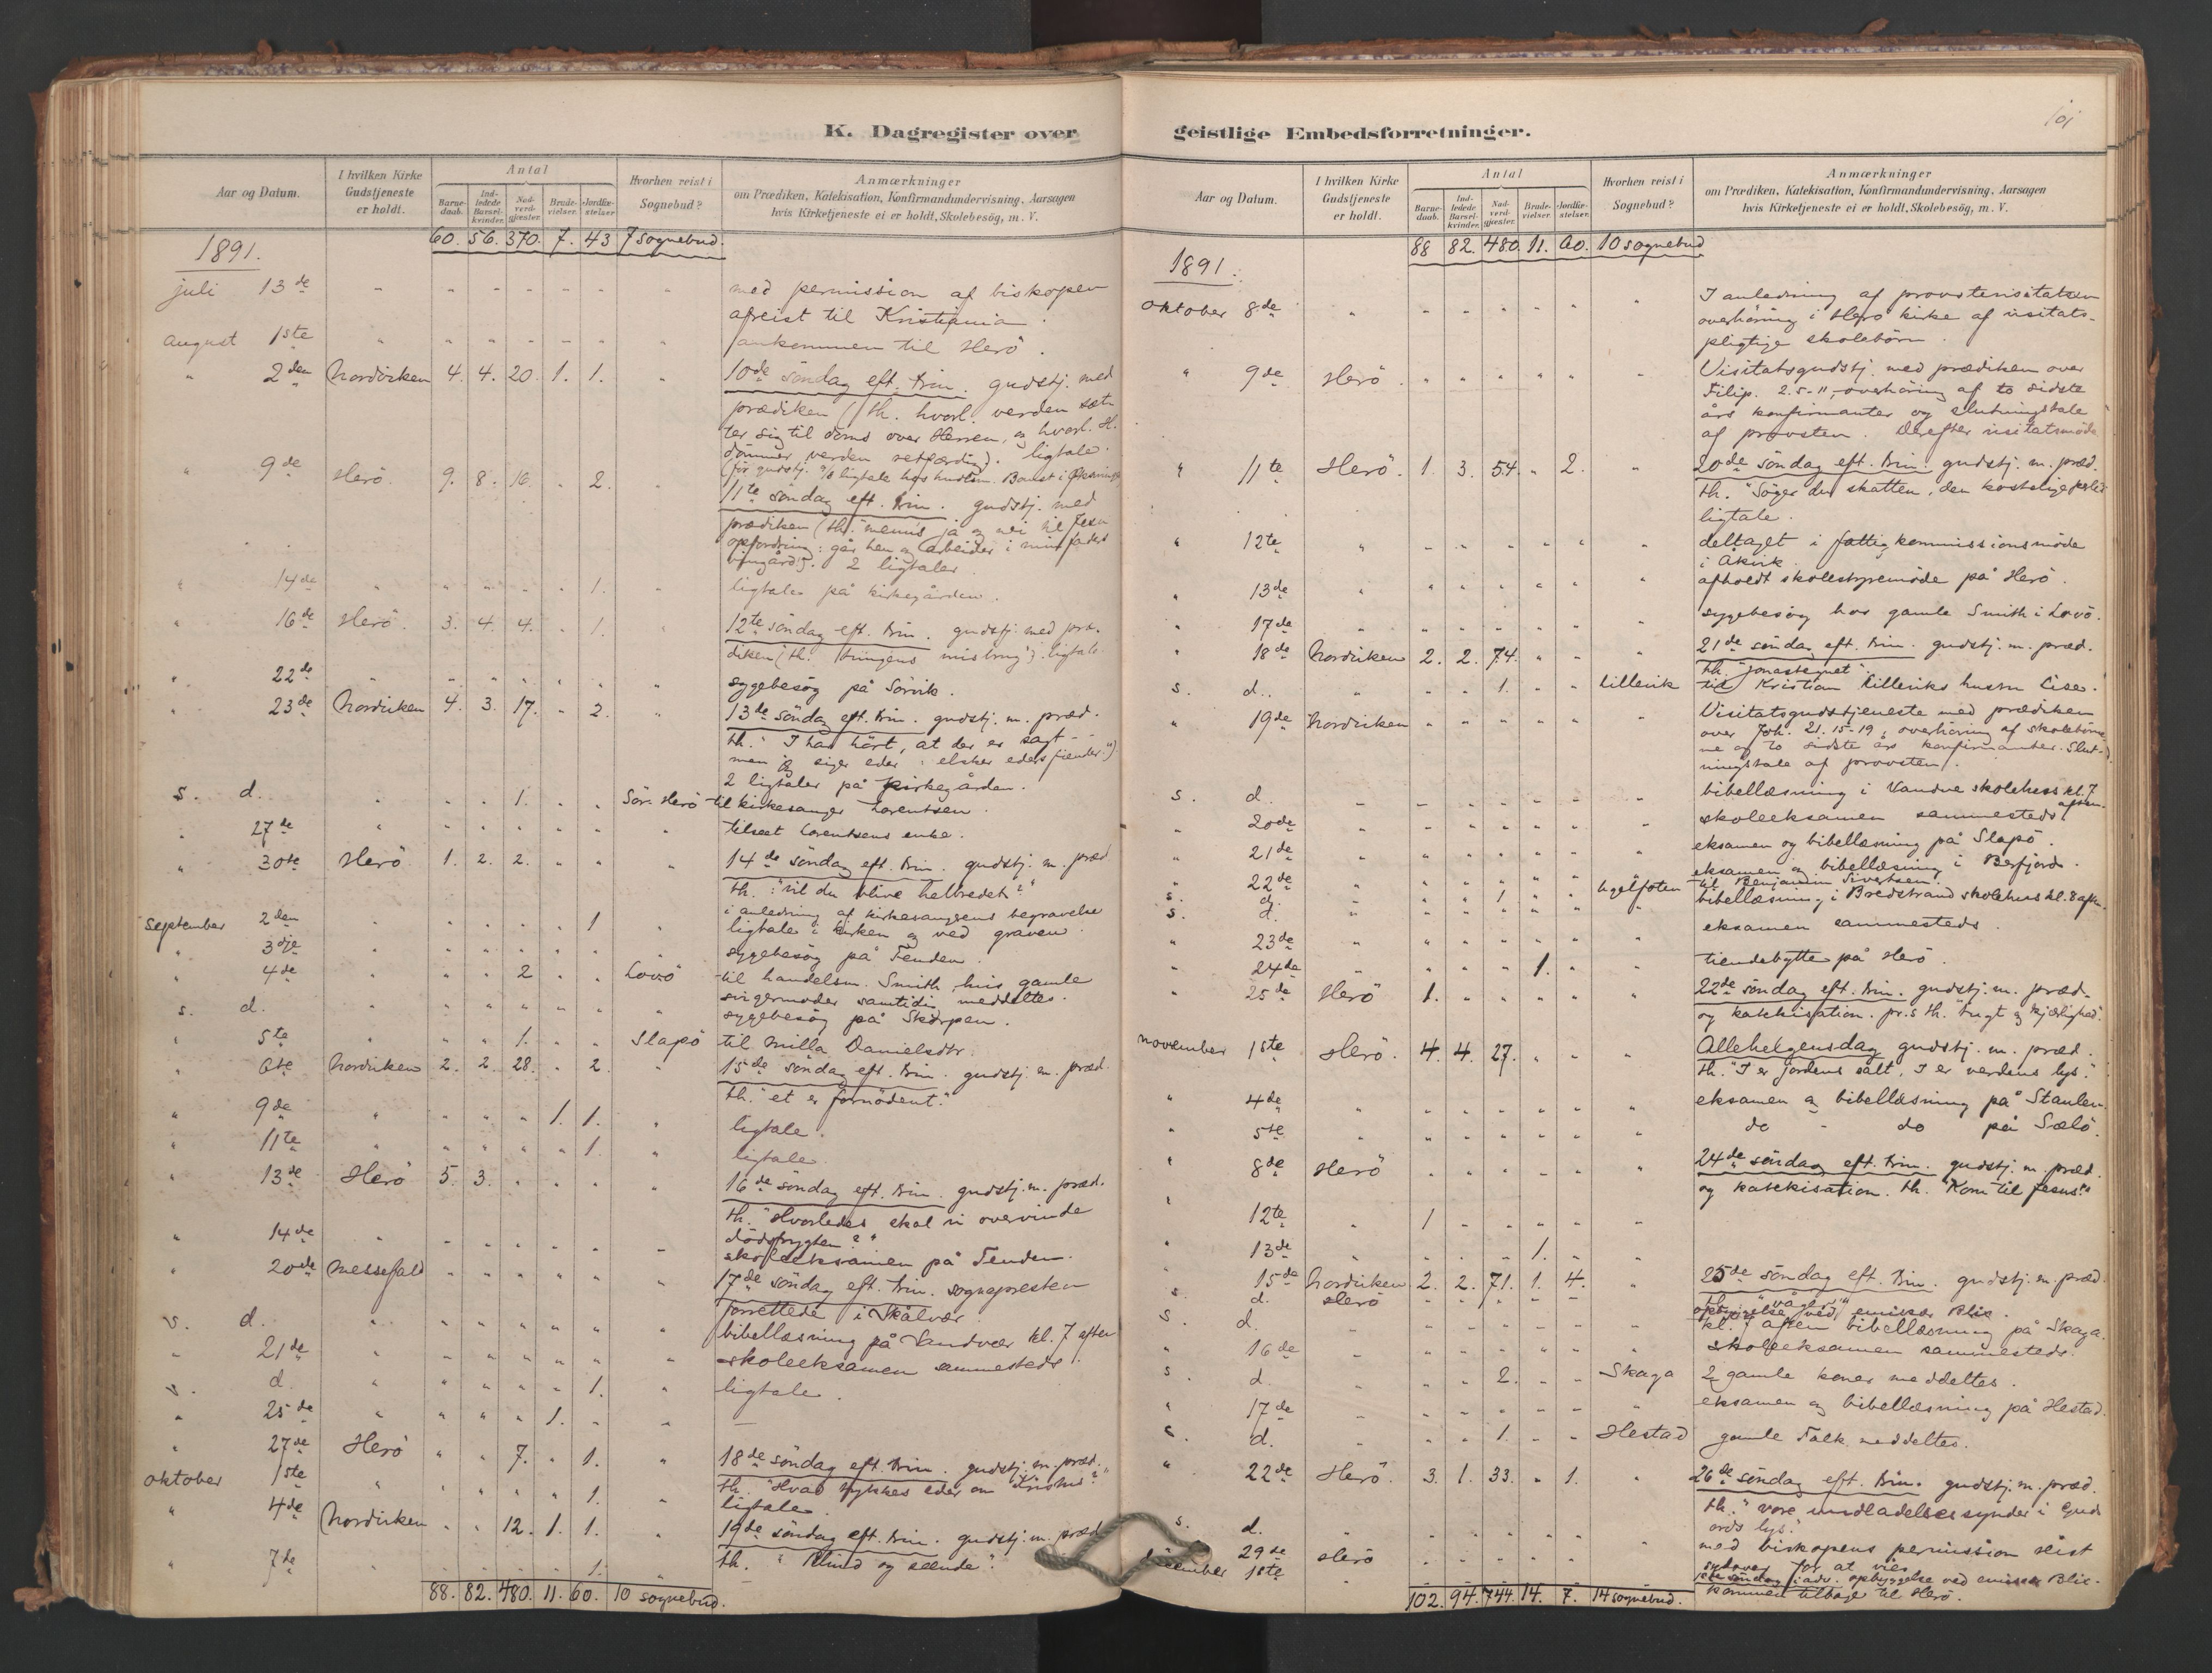 K. Dagregister over
Aar og Datum.
I hvilken Kirke Gudstjeneste er holdt.
Antal
Barne-daab.
Ind-ledede Barsel-kvinder.
Nad-verd-gjester.
Brude-vielser.
Jordfæ-stelser
Hvorhen reist i Sognebud?
Anmærkninger
om Prædiken, Katekisation, Konfirmandundervisning, Aarsagen
hvis Kirketjeneste ei er holdt, Skolebesög, m. V.
60. 56. 370. 7. 43 7 sognebud.
1891.
juli 13de med permission af biskopen
afreist til Kristiania.
august 1ste ankommen til Herö.
" 2den Nordviken 4. 4. 20. 1. 1. 10de söndag eft. trin. gudstj. med
prædiken (th. hvorl. verden sæt-
ter sig til doms over Herren, og hvorl. H.
dömmer verden retfærdig). ligtale.
" 9de Herö. 9. 8. 16. " 2.
11te söndag eft. trin. gudstj. med
prædiken (th. ja og nei til Jesu
opfordring: går hen og arbeider i min faders
vingård"). 2 ligtaler.
" 14de 1. ligtale på kirkegården.
" 16de Herö. 3. 4. 4. " 1. 12te söndag eft. trin. gudstj. med præ-
diken (th. misbrug). ligtale.
" 22de sygebesög på Sörvik.
" 23de Nordviken 4. 3. 17. " 2. 13de söndag eft. trin. gudstj. m. præd.
th. "I har hört, at der er sagt -
men jeg siger eder: elsker eders fiender").
2 ligtaler på kirkegården.
s. d. 1. Sör-Herö til kirkesanger Lorentsen.
" 27de tilseet Lorentsens enke.
" 30te Herö 1. 2. 2. 14de söndag eft. trin. gudstj. m. præd.
th.: "vil du blive helbredet?"
september 2den 1 i anledning af kirkesangerens begravelse
ligtale i kirken og ved graven.
" 3dje sygebesög på Tenden.
" 4de 2 Lovö til handelsm. Smith, hvis gamle
svigermoder samtidig meddeltes.
s. d. sygebesög på Skorpen.
" 5te 1. Slapö til Milla Danielsdtr.
" 6te Nordviken 2. 2. 28. " 2. 15de söndag eft. trin. gudstj. m. præd.
th. "et er fornödent."
" 9de 1. 1. ligtale.
" 11te 1. ligtale.
" 13de Herö 5. 3. 16de söndag eft. trin. gudstj. m. præd.
th. "Hvorledes skal vi overvinde
dödsfrygten?"
" 14de skoleeksamen på Tenden.
" 20de Messefald 17de söndag eft. trin. sognepresten
forrettede i Skålvær.
s. d. bibellæsning på Sandvær kl. 7 aften
" 21de skoleeksamen sammesteds.
s. d. 1. ligtale.
" 25de 1.
" 27de Herö " " 7. " 1. 18de söndag eft. trin. gudstj. m. præd.
th. "Hvad tykkes eder om Kristus?"
oktober 1ste 1. ligtale
" 4de Nordviken " " 12. 1. 1. 19de söndag eft. trin. gudstj. m. præd.
th. "Blind og seende."
" 7de 1.
88. 82. 480. 11. 60. 10 sognebud.
101
geistlige Embedsforretninger.
Aar og Datum.
I hvilken Kirke Gudstjeneste er holdt.
Antal
Barne-daab.
Ind-ledede Barsel-kvinder.
Nad-verd-gjester.
Brude-vielser.
Jordfæ-stelser.
Hvorhen reist i Sognebud?
Anmærkninger
om Prædiken, Katekisation, Konfirmandundervisning, Aarsagen
hvis Kirketjeneste ei er holdt, Skolebesög, m. V.
88 82. 480. 11. 60. 10 sognebud
1891.
oktober 8de I anledning af provstevisitatsen
overhöring i Herö kirke af visitats-
pligtige skolebörn.
" 9de Herö. Visitatsgudstj. med prædiken over
Filip. 2.5-11, overhöring af to sidste
års konfirmanter og slutningstale
af provsten. Derefter visitatsmöde
" 11te Herö. 1. 3. 54. " 2. 20de söndag eft. trin. gudstj. m. præd.
th. "Söger du skatten, den kostelige perle?"
ligtale.
" 12te deltaget i fattigkommissionsmöde
i Åkvik.
" 13de afholdt skolestyremöde på Herö.
" 17de sygebesög hos gamle Smith i Lovö.
" 18de Nordviken 2. 2. 74. 21de söndag eft. trin. gudstj. m. præd.
th. "Jonastegnet"
s. d. 1. Lillevik til Kristian Lilleviks hustru Lise.
" 19de Nordviken Visitatsgudstjeneste med prædiken
over Joh. 21. 15-19, overhöring af skolebörne-
ne og to sidste års konfirmanter. Slut-
ningstale af provsten.
s. d. bibellæsning i Vandve skolehus kl. 7
aften.
" 20de skoleeksamen sammesteds.
" 21de eksamen og bibellæsning på Slapö.
" 22de eksamen og bibellæsning i Berfjord.
s. d. 1 til Benjamin Sivertsen.
s. d. bibellæsning i Bredstrand skolehus kl. 8 aften.
" 23de eksamen sammesteds.
" 24de 1. tiendebytte på Herö.
" 25de Herö 1. 22de söndag eft. trin. gudstj. m. præd.
og katekisation. pr.s th. "frygt og kjærlighed."
november 1ste Herö. 4. 4. 27. Allehelgensdag gudstj. m. præd.
th. "I er jordens salt, I er verdens lys."
" 4de eksamen og bibellæsning på Staulen.
" 5te do - do på Sælö.
" 8de Herö 24de söndag eft. trin. gudstj. m. præd.
og katekisation. th. "Kom til Jesus!"
" 12te 1
" 13de 1.
" 15de Nordviken 2. 2. 71. 1. 4. 25de söndag eft. trin. gudstj. m. præd.
s. d. Herö opbyggelse ved emissær Blic.
s. d. kl. 7 aften bibellæsning på Skaga.
" 16de skoleeksamen sammesteds.
s. d. 2. Skaga 2 gamle koner meddeltes.
" 17de eksamen og bibellæsning på Hestad.
s. d. 1. Hestad gamle Falk meddeltes.
" 22de Herö. 3. 1. 33. " 1. 26de söndag eft. trin. gudstj. m. præd.
th. "vore undladelsessynder i Guds
ords lys."
s. d. med biskopens permission reist
sydover for at vies
29de Herö 1ste söndag i adv. opbyggelse ved emissær Blic.
1ste kommen tilbage til Herö.
102. 94. 744. 14. 7. 14 sognebud.